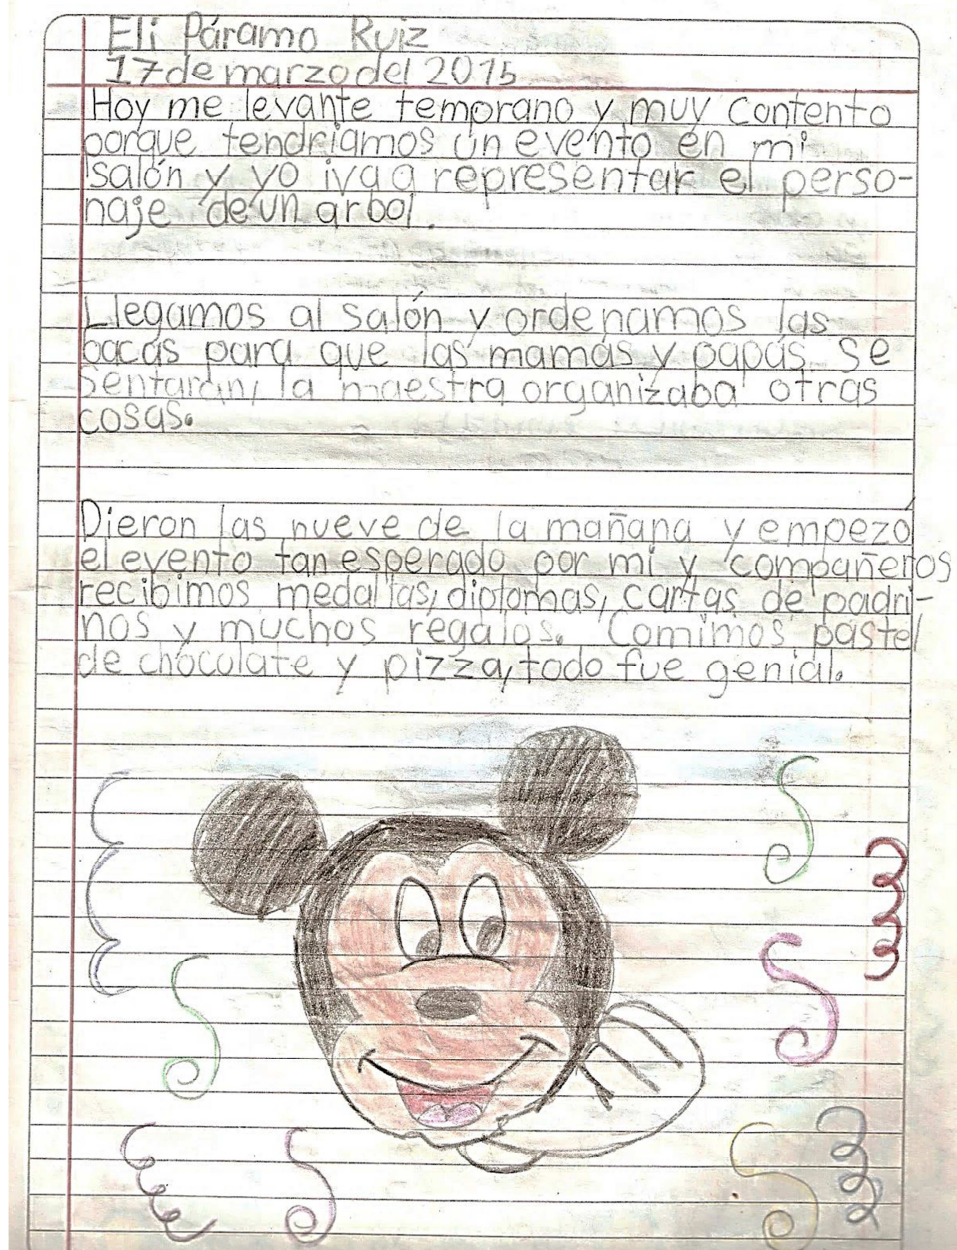 Eli Páramo Ruiz
17 de marzo del 2015
Hoy me levante temprano y muy contento
porque tendriamos un evento en mi
salón y yo iva a representar el perso-
naje de un arbol.
Llegamos al salón y ordenamos las
bacas para que las mamás y papás se
sentaran, la maestra organizaba otras
cosas.
Dieron las nueve de la mañana y empezó
el evento tan esperado por mi y compañeros
recibimos medallas, diplomas, cartas de padri-
nos y muchos regalos. Comimos pastel
de chocolate y pizza, todo fue genial.